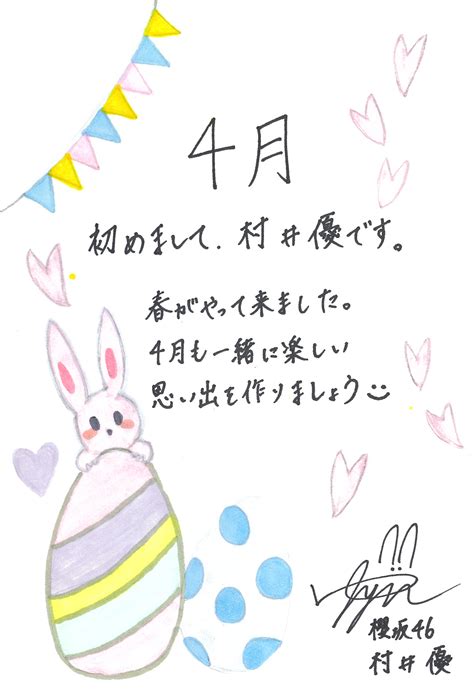 4月
初めまして、村井優です。
春がやって来ました。
4月も一緒に楽しい
思い出を作りましょう
櫻坂46
村井 優